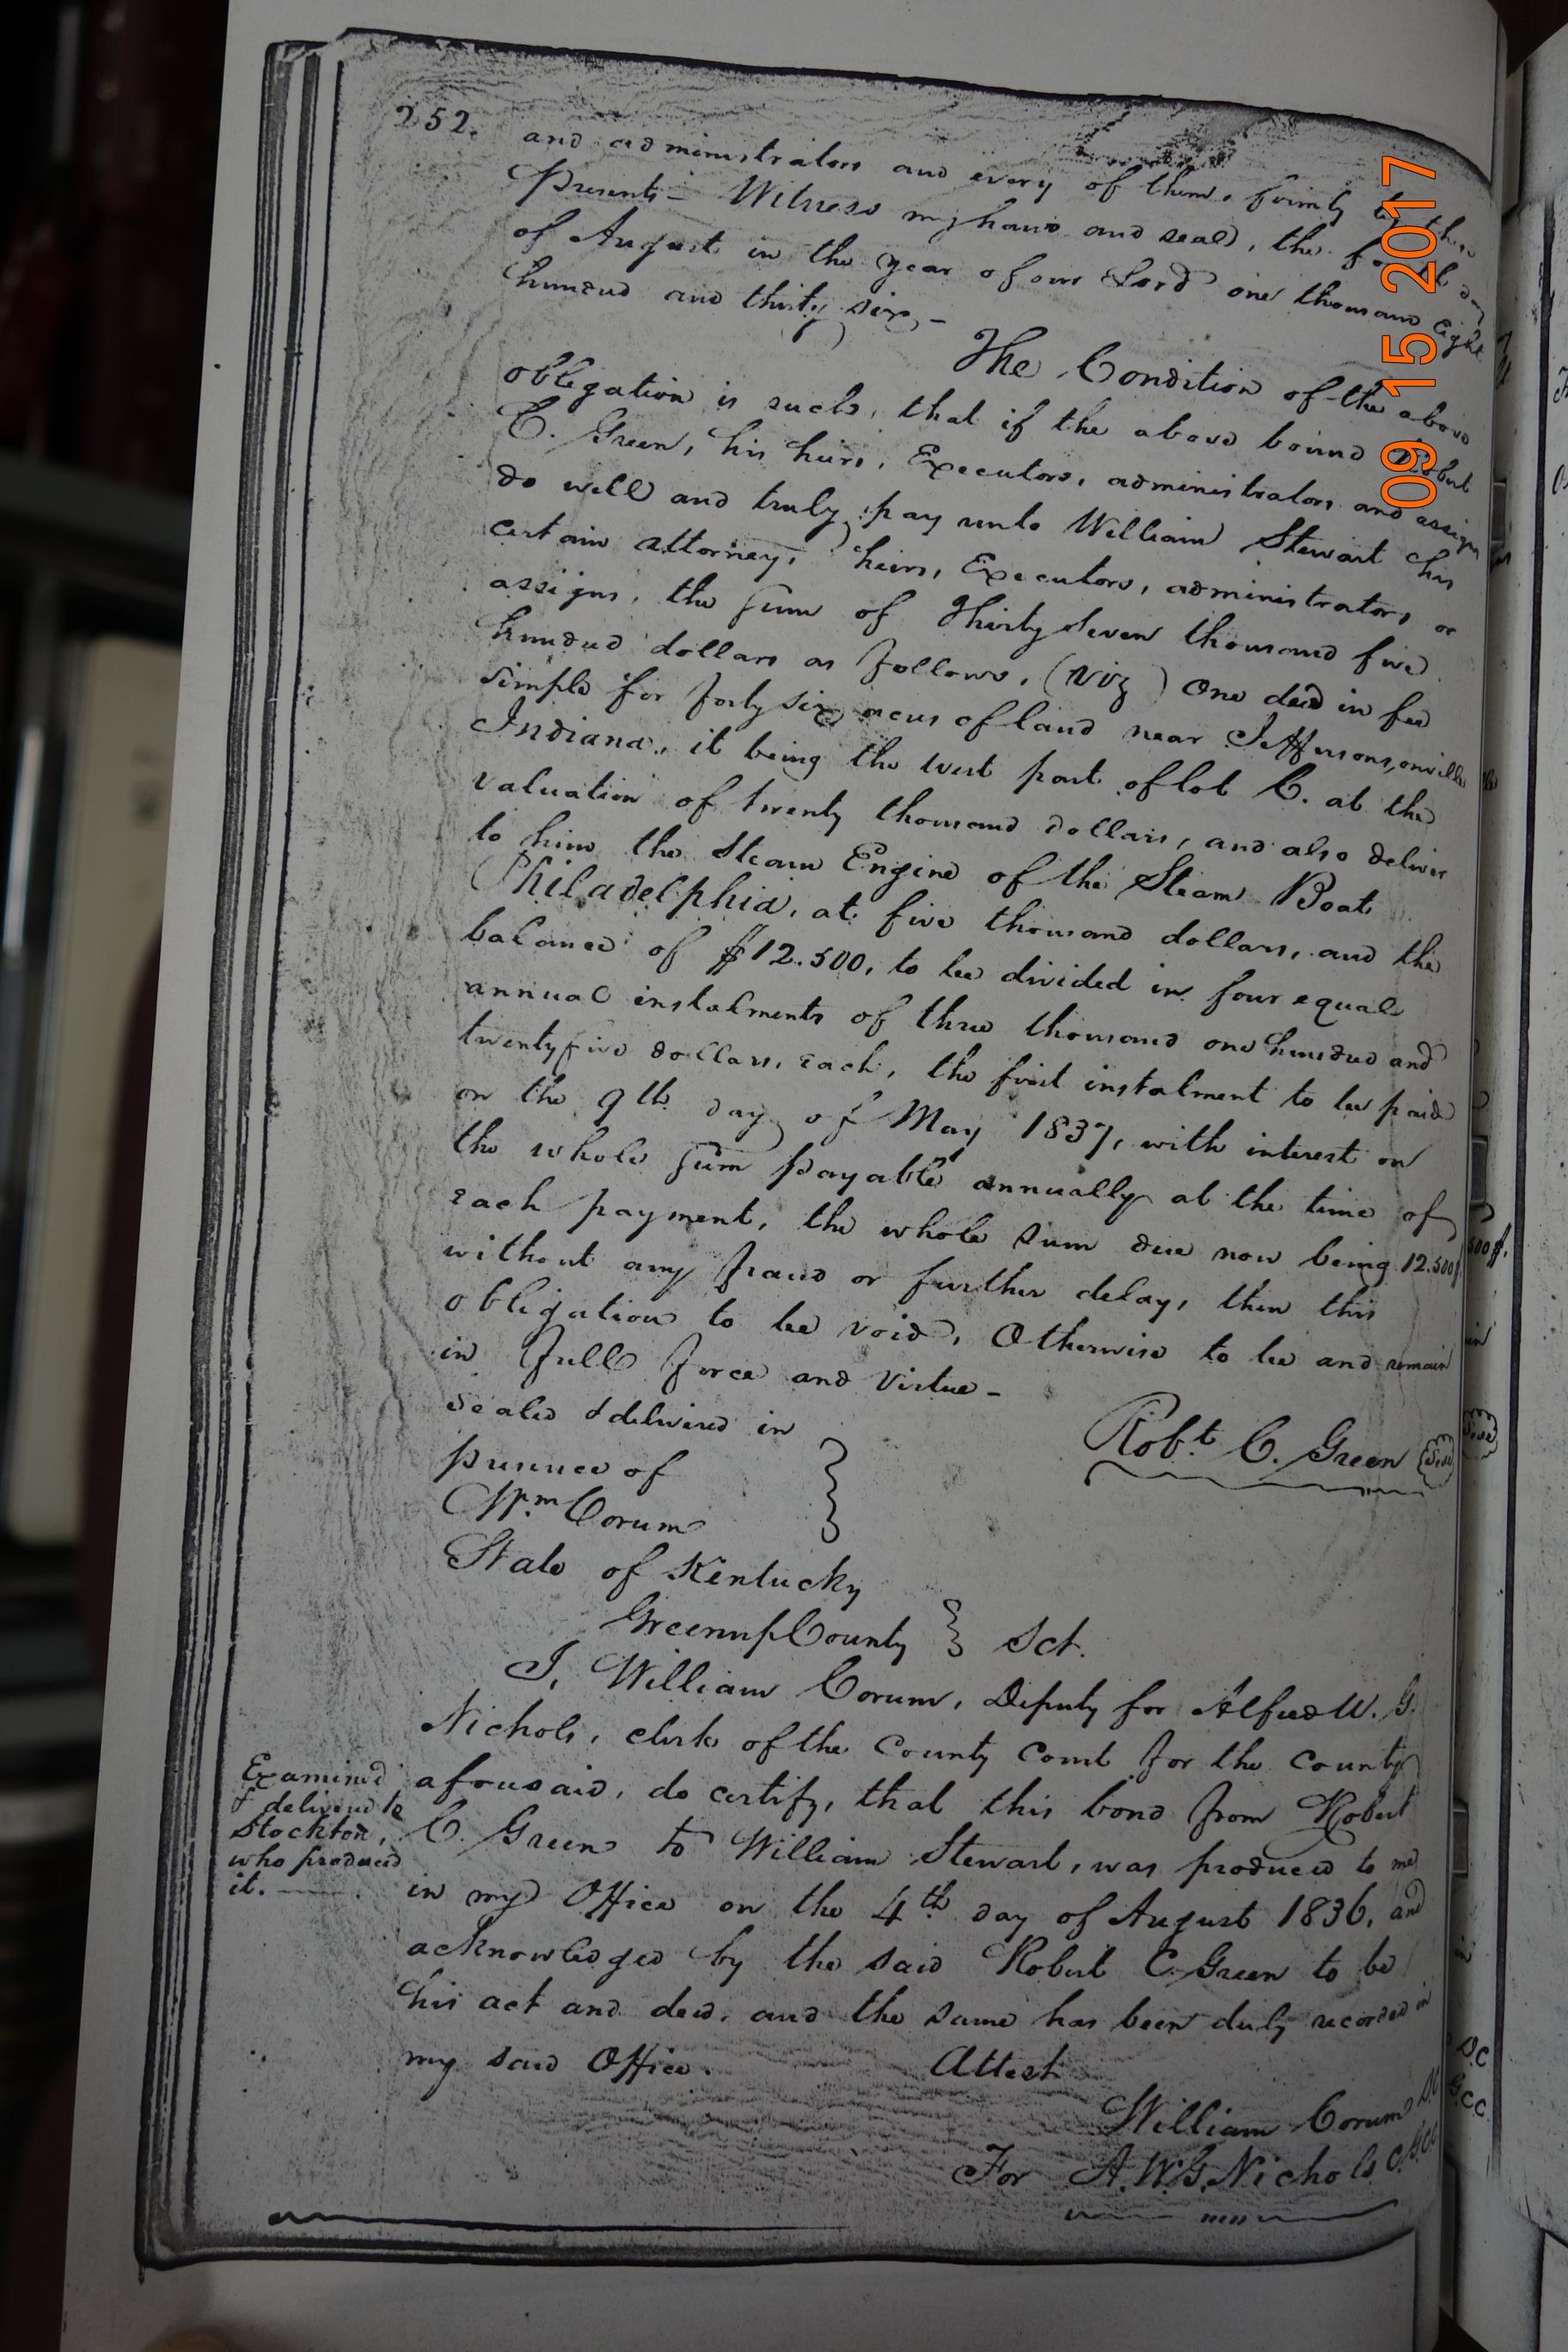 252.
and administrators and every of them, firmly by these
Presents - Witness my hand and seal, the fourth day
of August in the year of our Lord one thousand Eight
hundred and thirty six, -
The Condition of the above
obligation is such, that if the above bound Robert
C. Green, his heirs, Executors, administrators and assigns
do well and truly pay unto William Stewart his
certain attorney, heirs, Executors, administrators, or
assigns, the sum of Thirty Seven thousand five
hundred dollars as follows, (viz) One deed in fee
simple for forty six acres of land near Jeffersonsonville
Indiana, it being the west part of lot C. at the
valuation of twenty thousand dollars, and also deliver
to him the Steam Engine of the Steam Boat
Philadelphia, at five thousand dollars, and the
balance of $12.500, to be divided in four equal
annual instalments of three thousand one hundred and
twenty five dollars, each, the first instalment to be paid
on the 9th day of May 1837, with interest on
the whole sum payable annually at the time of
each payment, the whole sum due now being 12.500$.
without any fraud or further delay, then this
obligation to be void, Otherwise to be and remain
in full force and virtue -
Sealed & delivered in
presence of
Wm. Corum
Robt. C. Green
Seal
State of Kentucky
Greenup County } Sct.
I, William Corum, Deputy for Alfred W. G.
Nichols, clerk of the County Court for the County
aforesaid, do certify, that this bond from Robert
C. Green to William Stewart, was produced to me
in my Office on the 4th day of August 1836, and
acknowledged by the said Robert C. Green to be
his act and deed, and the same has been duly recorded in
my said Office.
Attest
William Corum D.C
For A.W.G. Nichols C.G.C.C.
Examined
& delivered to
Stockton,
who produced
it.
09 15 2017